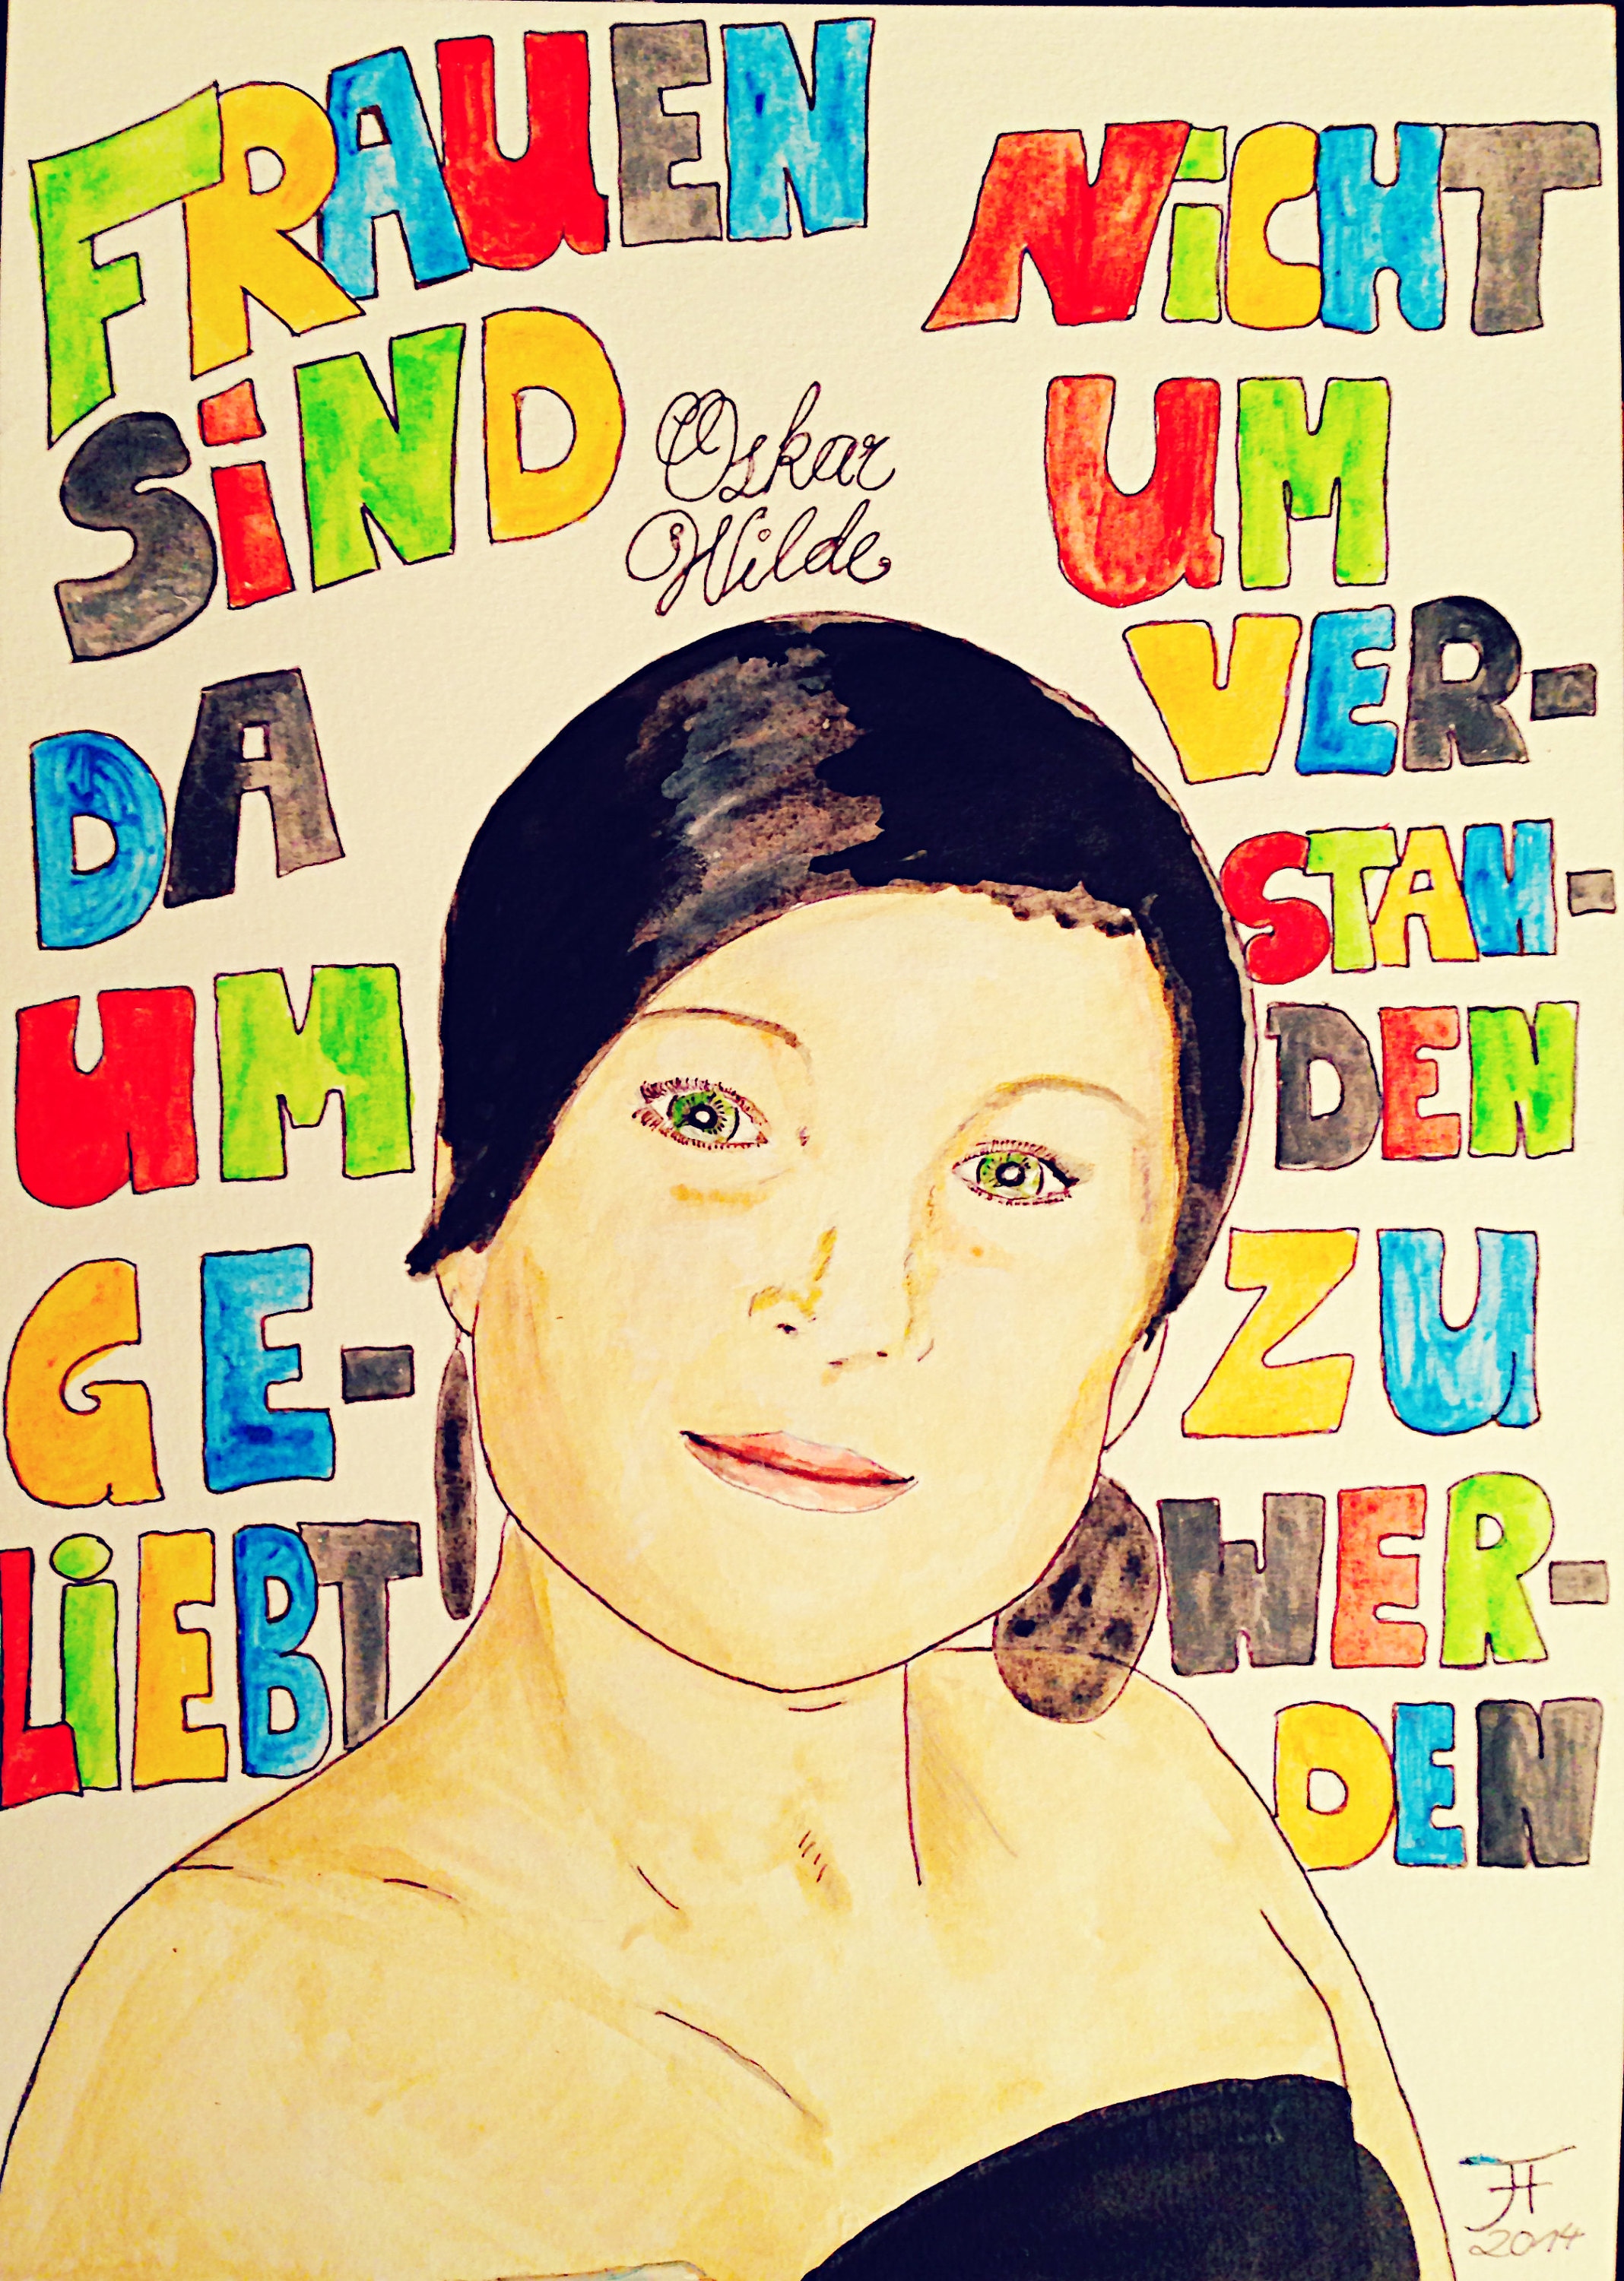 FRAUEN
SiND
DA
UM
GE-
LiEBT
NiCHT
UM
VER-
STAN-
DEN
ZU
WER-
DEN
Oskar
Wilde
2014